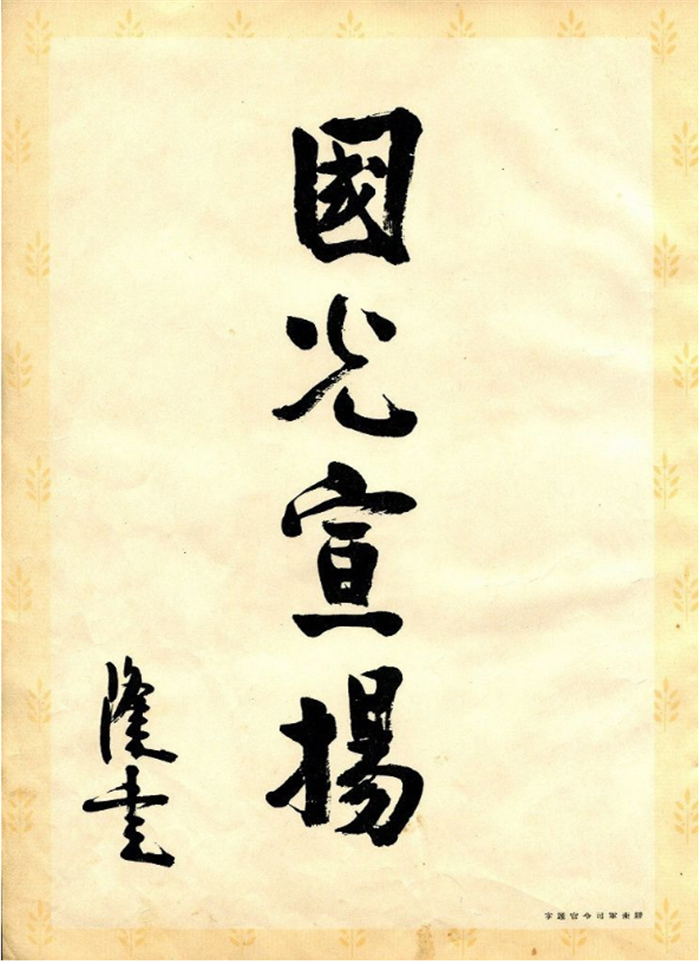 國光宣揚
隆書
關東軍司令官題字